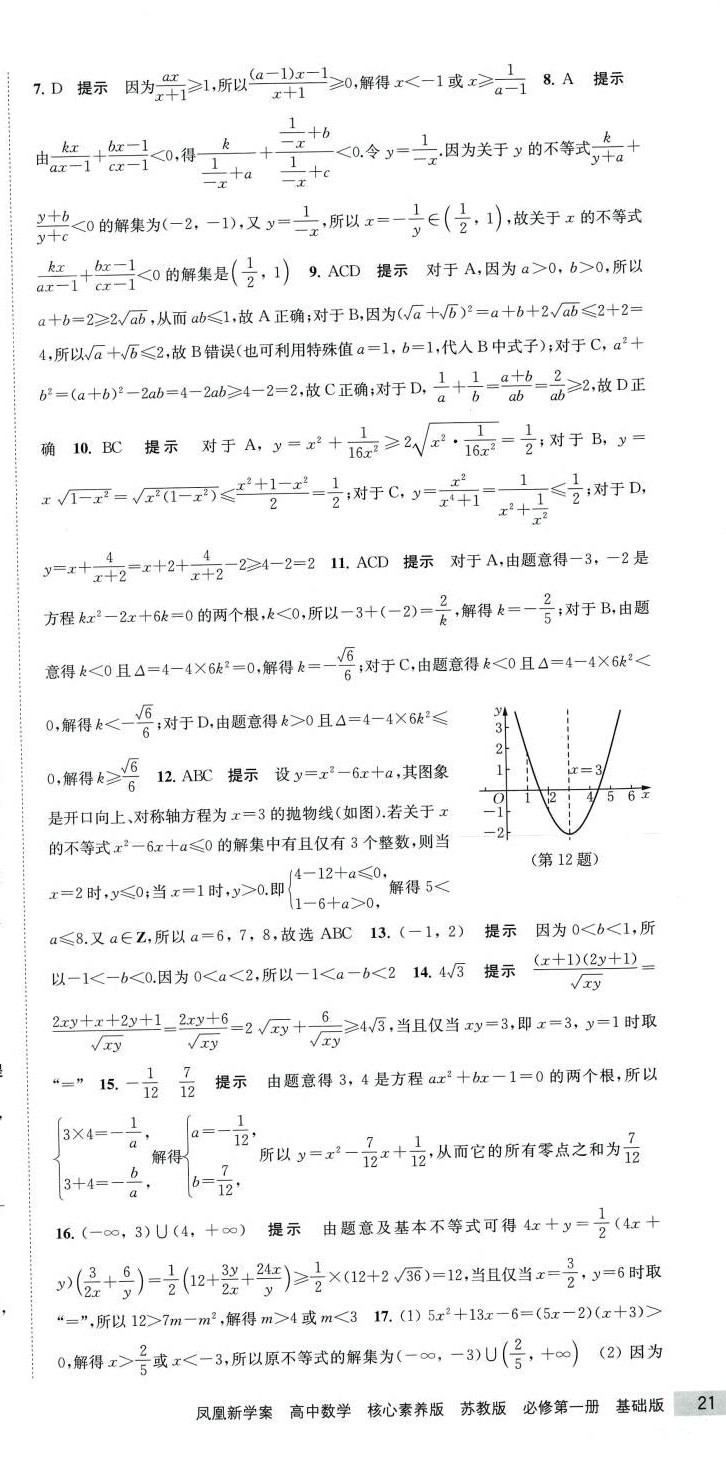 7. D 提示 因为ax/(x+1)≥1,所以((a−1)x−1)/(x+1)≥0,解得 x<−1 或 x≥1/(a−1) 8. A 提示
由kx/(ax−1)+(bx−1)/(cx−1)<0,得k/(1/(−x)+a)+(1/(−x)+b)/(1/(−x)+c)<0.令 y=1/(−x).因为关于 y 的不等式k/(y+a)+
(y+b)/(y+c)<0 的解集为(−2, −1),又 y=1/(−x),所以 x=−1/y∈(1/2, 1),故关于 x 的不等式
kx/(ax−1)+(bx−1)/(cx−1)<0 的解集是(1/2, 1) 9. ACD 提示 对于 A,因为 a>0, b>0,所以
a+b=2≥2√ab,从而 ab≤1,故 A 正确;对于 B,因为(√a+√b)²=a+b+2√ab≤2+2=
4,所以√a+√b≤2,故 B 错误(也可利用特殊值 a=1, b=1,代入 B 中式子);对于 C, a²+
b²=(a+b)²−2ab=4−2ab≥4−2=2,故 C 正确;对于 D, 1/a+1/b=(a+b)/ab=2/ab≥2,故 D 正
确 10. BC 提示 对于 A, y=x²+1/(16x²)≥2√(x²·1/(16x²))=1/2;对于 B, y=
x√(1−x²)=√(x²(1−x²))≤(x²+1−x²)/2=1/2;对于 C, y=x²/(x⁴+1)=1/(x²+1/x²)≤1/2;对于 D,
y=x+4/(x+2)=x+2+4/(x+2)−2≥4−2=2 11. ACD 提示 对于 A,由题意得−3, −2 是
方程 kx²−2x+6k=0 的两个根,k<0,所以−3+(−2)=2/k,解得 k=−2/5;对于 B,由题
意得 k<0 且 Δ=4−4×6k²=0,解得 k=−√6/6;对于 C,由题意得 k<0 且 Δ=4−4×6k²<
0,解得 k<−√6/6;对于 D,由题意得 k>0 且 Δ=4−4×6k²≤
0,解得 k≥√6/6 12. ABC 提示 设 y=x²−6x+a,其图象
是开口向上、对称轴方程为 x=3 的抛物线(如图).若关于 x
的不等式 x²−6x+a≤0 的解集中有且仅有 3 个整数,则当
x=2 时,y≤0;当 x=1 时,y>0.即{4−12+a≤0, 1−6+a>0, 解得 5<
y
3
2
1
x=3
O 1 2 4 5 6 x
−1
−2
(第 12 题)
a≤8.又 a∈Z,所以 a=6, 7, 8,故选 ABC 13. (−1, 2) 提示 因为 0<b<1,所
以−1<−b<0.因为 0<a<2,所以−1<a−b<2 14. 4√3 提示 (x+1)(2y+1)/√xy=
(2xy+x+2y+1)/√xy=(2xy+6)/√xy=2√xy+6/√xy≥4√3,当且仅当 xy=3,即 x=3, y=1 时取
“=” 15. −1/12 7/12 提示 由题意得 3, 4 是方程 ax²+bx−1=0 的两个根,所以
{3×4=−1/a, 3+4=−b/a, 解得{a=−1/12, b=7/12, 所以 y=x²−7/12x+1/12,从而它的所有零点之和为7/12
16. (−∞, 3)∪(4, +∞) 提示 由题意及基本不等式可得 4x+y=1/2(4x+
y)(3/2x+6/y)=1/2(12+3y/2x+24x/y)≥1/2×(12+2√36)=12,当且仅当 x=3/2, y=6 时取
“=”,所以 12>7m−m²,解得 m>4 或 m<3 17. (1) 5x²+13x−6=(5x−2)(x+3)>
0,解得 x>2/5或 x<−3,所以原不等式的解集为(−∞, −3)∪(2/5, +∞) (2) 因为
凤凰新学案 高中数学 核心素养版 苏教版 必修第一册 基础版 21